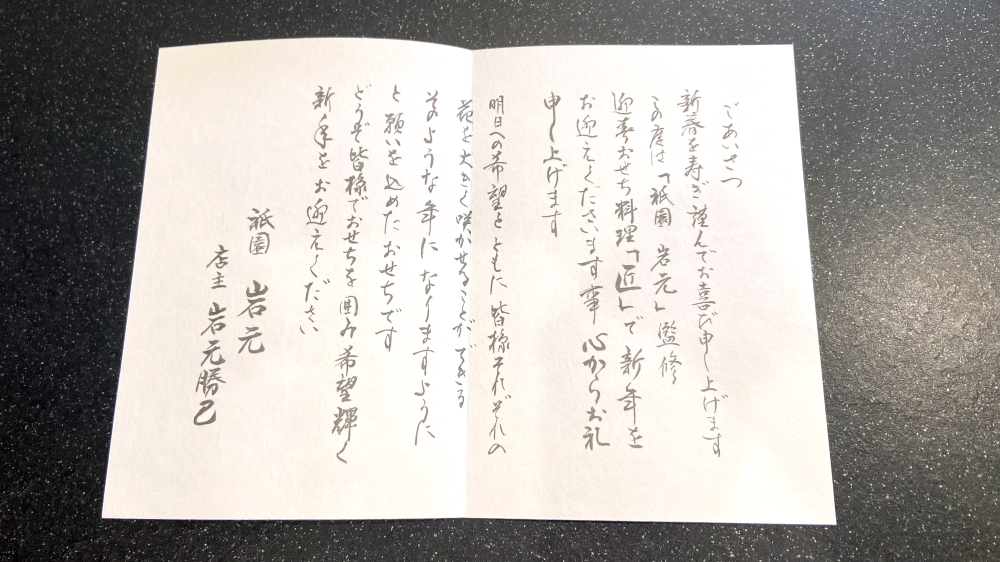 ごあいさつ
新春を寿ぎ謹んでお喜び申し上げます
この度は「祇園 岩元」監修
迎春おせち料理「匠」で新年を
お迎えくださいます事 心からお礼
申し上げます
明日への希望とともに 皆様それぞれの
花を大きく咲かせることができる
そのような年に なりますように
と願いを込めたおせちです
どうぞ皆様でおせちを囲み 希望輝く
新年をお迎えください
祇園 岩元
店主 岩元勝己